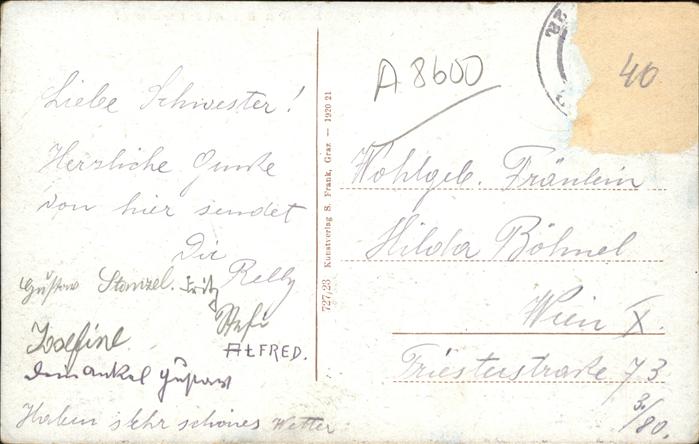 Liebe Schwester!
Herzliche Grüße
von hier sendet
Dir
Relly
Gustav Stanzel. Fritz
Stefi
Josefine
ALFRED.
Gustav
Haben sehr schönes Wetter
727/23 Kunstverlag S. Frank, Graz — 1920 21
A 8600
40
Wohlgeb. Fräulein
Hilda Böhnel
Wien X.
Triesterstraße 73
3./80.